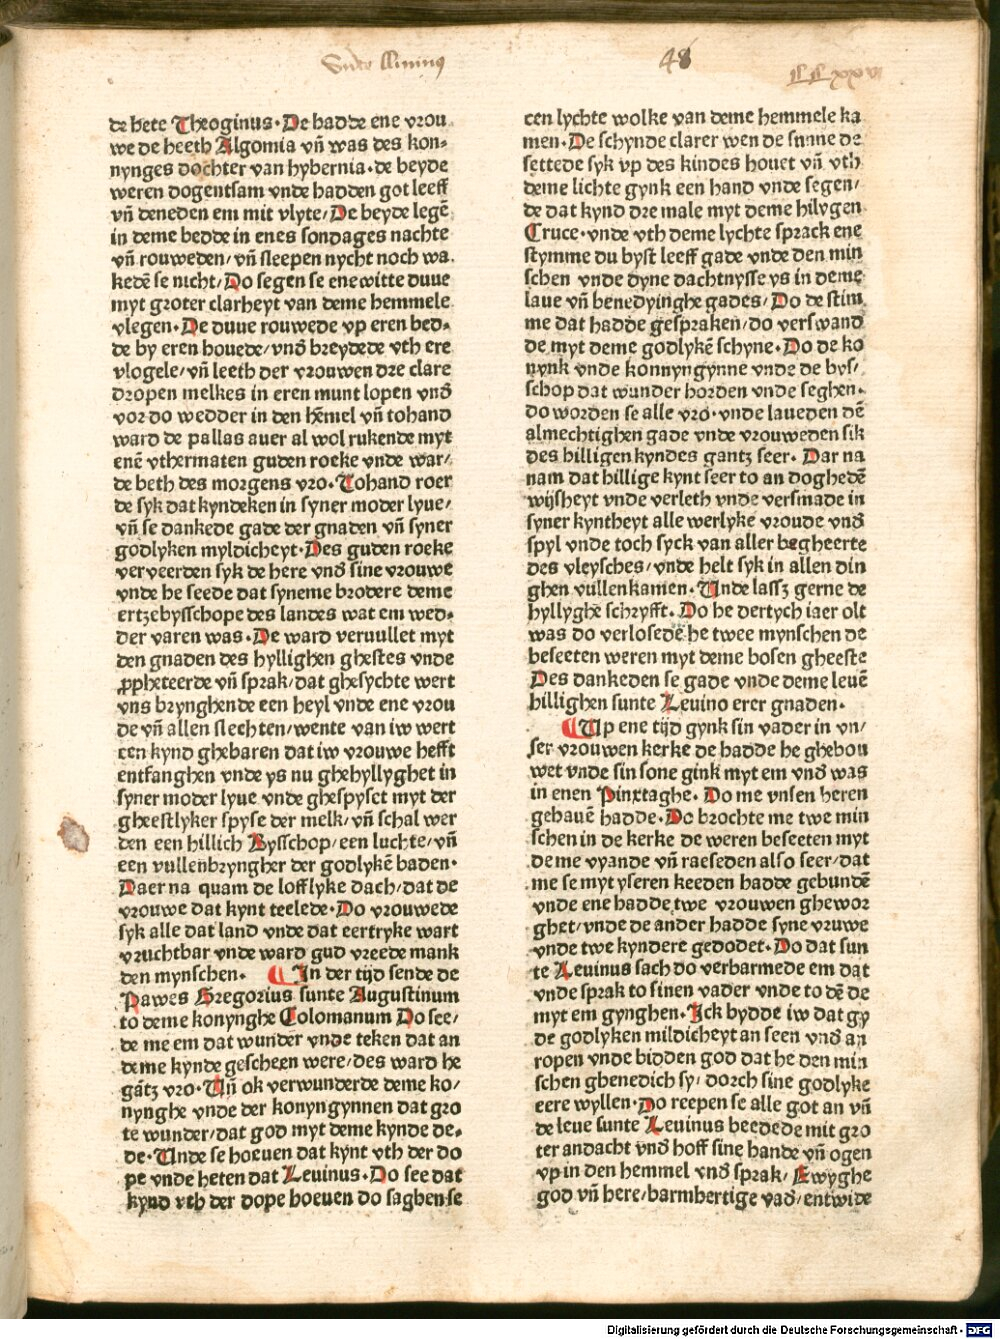 48
de hete Theoginus· De hadde ene vrou
we de heeth Algomia vn̄ was des kon⸗
nynges dochter van hybernia· de beyde
weren dogentsam vnde hadden got leeff
vn̄ deneden em mit vlyte/ De beyde legē
in deme bedde in enes sondages nachte
vn̄ rouweden/ vn̄ sleepen nycht noch wa
kedē se nicht/ Do segen se ene witte duue
myt groter clarheyt van deme hemmele
vlegen· De duue rouwede vp eren bed⸗
de by eren houede/ vnd̄ breydede vth ere
vlogele/ vn̄ leeth der vrouwen dre clare
dropen melkes in eren munt lopen vnd̄
vor do wedder in den hēmel vn̄ tohand
ward de pallas auer al wol rukende myt
enē vthermaten guden roeke vnde war/
de beth des morgens vro· Tohand roer
de syk dat kyndeken in syner moder lyue/
vn̄ se dankede gade der gnaden vn̄ syner
godlyken myldicheyt· Des guden roeke
verveerden syk de here vnd̄ sine vrouwe
vnde he seede dat syneme brodere deme
ertzebysschope des landes wat em wed⸗
der varen was· De ward veruullet myt
den gnaden des hyllighen ghestes vnde
ꝓpheteerde vn̄ sprak/ dat ghesychte wert
vns brynghende een heyl vnde ene vrou
de vn̄ allen slechten/ wente van iw wert
een kynd ghebaren dat iw vrouwe hefft
entfanghen vnde ys nu ghehyllyghet in
syner moder lyue vnde ghespyset myt der
gheestlyker spyse der melk/ vn̄ schal wer
den een hillich Bysschop/ een luchte/ vn̄
een vullenbryngher der godlykē baden·
Daer na quam de lofflyke dach/ dat de
vrouwe dat kynt teelede· Do vrouwede
syk alle dat land vnde dat eertryke wart
vruchtbar vnde ward gud vreede mank
den mynschen· ¶ In der tijd sende de
Pawes Gregorius sunte Augustinum
to deme konynghe Colomanum Do see/
de me em dat wunder vnde teken dat an
deme kynde gescheen were/ des ward he
gātz vro· Vn̄ ok verwunderde deme ko/
nynghe vnde der konyngynnen dat gro
te wunder/ dat god myt deme kynde de⸗
de· Vnde se hoeuen dat kynt vth der do
pe vnde heten dat Leuinus· Do see dat
kynd vth der dope hoeuen do saghen se
een lychte wolke van deme hemmele ka
men· De schynde clarer wen de sunne de
settede syk vp des kindes houet vn̄ vth
deme lichte gynk een hand vnde segen/
de dat kynd dre male myt deme hilygen
Cruce· vnde vth deme lychte sprack ene
stymme du byst leeff gade vnde den min
schen vnde dyne dachtnysse ys in deme
laue vn̄ benedyinghe gades/ Do de stim
me dat hadde gespraken/ do verswand
de myt deme godlykē schyne· Do de ko
nynk vnde konnyngynne vnde de bys/
schop dat wunder horden vnde seghen·
do worden se alle vro· vnde laueden dē
almechtighen gade vnde vrouweden sik
des hilligen kyndes gantz seer· Dar na
nam dat hillige kynt seer to an doghedē
wijsheyt vnde verleth vnde versmade in
syner kyntheyt alle werlyke vroude vnd̄
spyl vnde toch syck van aller begheerte
des vleysches/ vnde helt syk in allen din
ghen vullenkamen· Vnde lassz gerne de
hyllyghē schryfft· Do he dertych iaer olt
was do verlosedē he twee mynschen de
beseeten weren myt deme bosen gheeste
Des dankeden se gade vnde deme leuē
hillighen sunte Leuino erer gnaden·
¶ Vp ene tijd gynk sin vader in vn/
ser vrouwen kerke de hadde he ghebou
wet vnde sin sone gink myt em vnd̄ was
in enen Pinxtaghe· Do me vnsen heren
gehauē hadde· Do brochte me twe min
schen in de kerke de weren beseeten myt
deme vyande vn̄ raeseden also seer/ dat
me se myt yseren keeden hadde gebundē
vnde ene hadde twe vrouwen ghewor
ghet/ vnde de ander hadde syne vruwe
vnde twe kyndere gedodet· Do dat sun
te Leuinus sach do verbarmede em dat
vnde sprak to sinen vader vnde to dē de
myt em gynghen· Ick bydde iw dat gy
de godlyken mildicheyt an seen vnd̄ an
ropen vnde bidden god dat he den min
schen ghenedich sy/ dorch sine godlyke
eere wyllen· Do reepen se alle got an vn̄
de leue sunte Leuinus beedede mit gro
ter andacht vnd̄ hoff sine hande vn̄ ogen
vp in den hemmel vnd̄ sprak/ Ewyghe
god vn̄ here/ barmhertige vad̄/ entwide
Digitalisierung gefördert durch die Deutsche Forschungsgemeinschaft - DFG